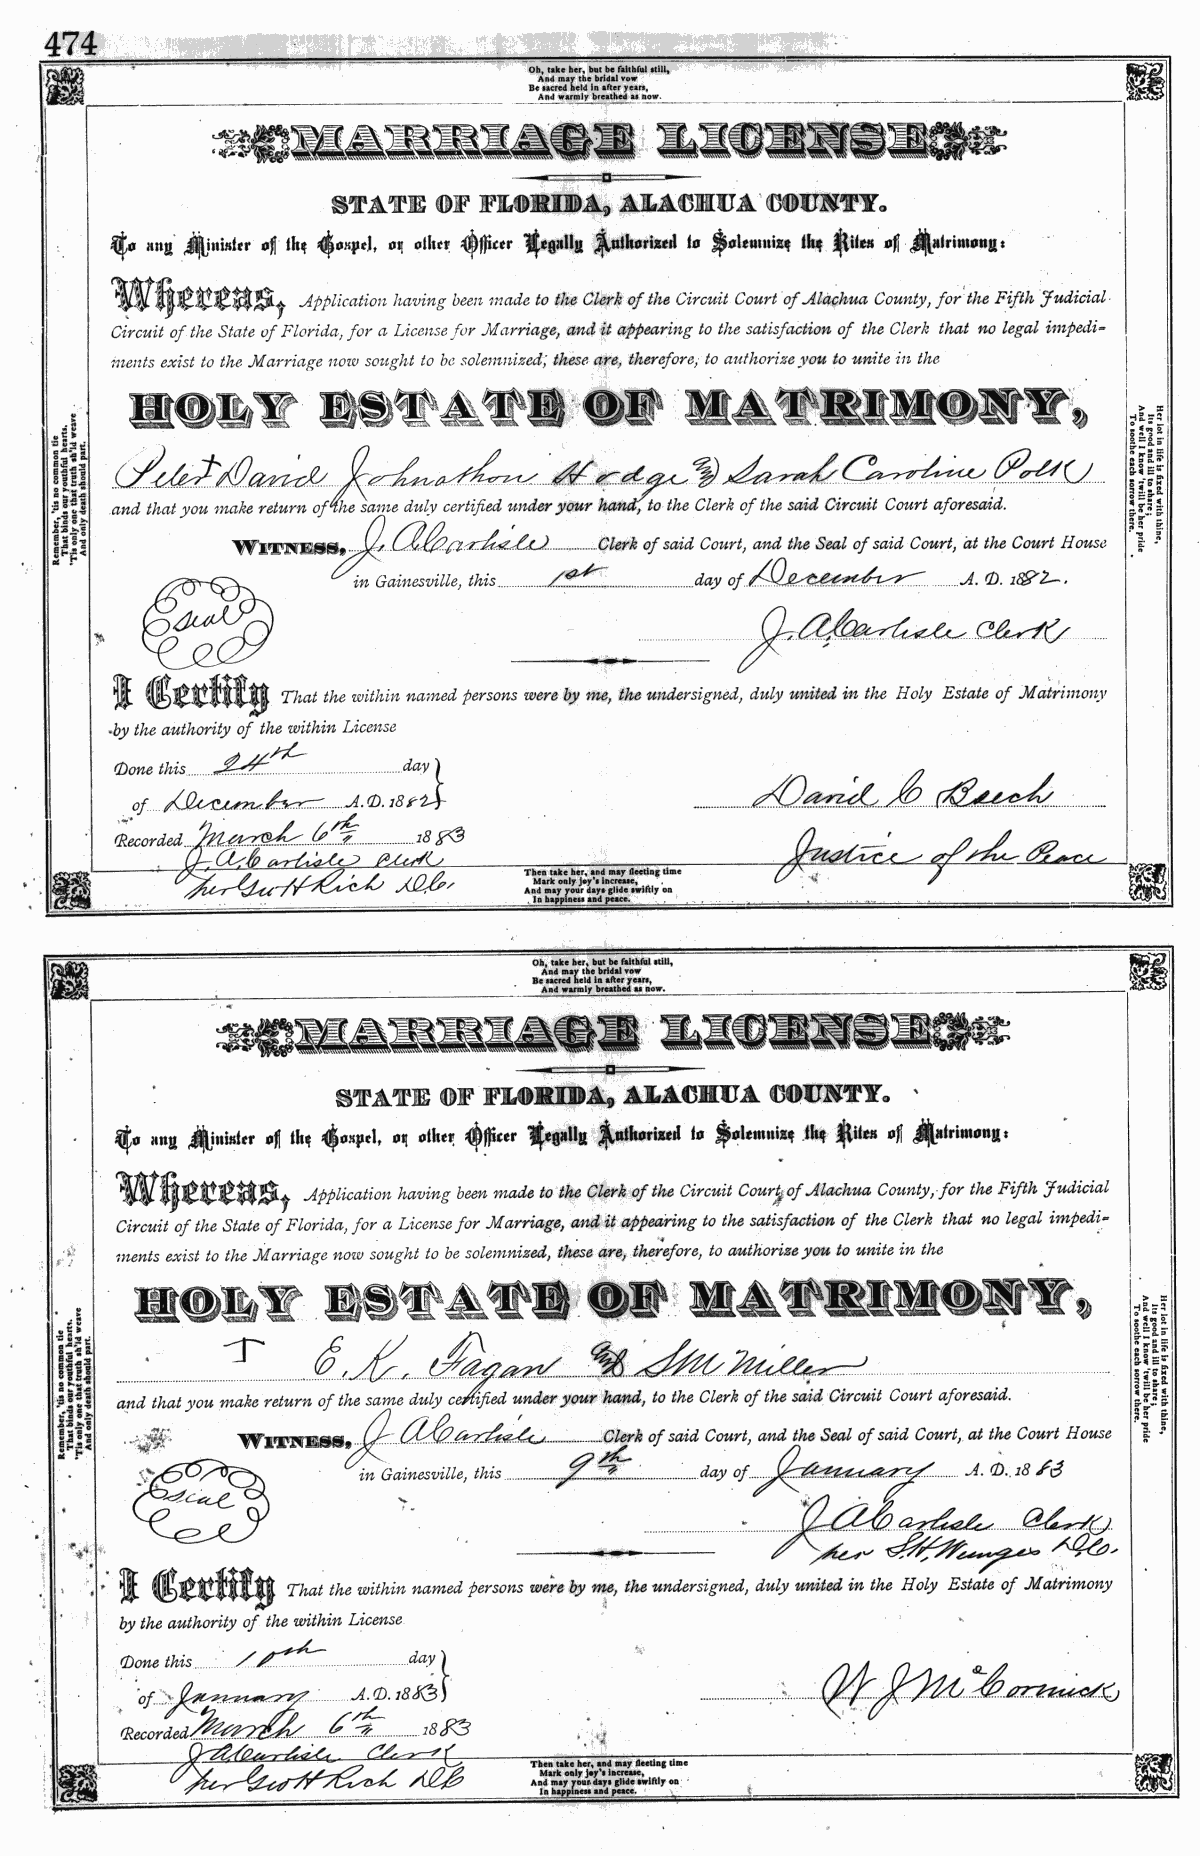 474
Oh, take her, but be faithful still,
And may the bridal vow
Be sacred held in after years,
And warmly breathed as now.
MARRIAGE LICENSE
STATE OF FLORIDA, ALACHUA COUNTY.
To any Minister of the Gospel, or other Officer Legally Authorized to Solemnize the Rites of Matrimony:
Whereas, Application having been made to the Clerk of the Circuit Court of Alachua County, for the Fifth Judicial
Circuit of the State of Florida, for a License for Marriage, and it appearing to the satisfaction of the Clerk that no legal impedi-
ments exist to the Marriage now sought to be solemnized, these are, therefore, to authorize you to unite in the
HOLY ESTATE OF MATRIMONY,
Peter David Johnathon Hodge and Sarah Caroline Polk
and that you make return of the same duly certified under your hand, to the Clerk of the said Circuit Court aforesaid.
WITNESS, J. A. Carlisle Clerk of said Court, and the Seal of said Court, at the Court House
in Gainesville, this 1st day of December A. D. 1882.
Seal
J. A. Carlisle Clerk
I Certify That the within named persons were by me, the undersigned, duly united in the Holy Estate of Matrimony
by the authority of the within License
Done this 24th day
of December A. D. 1882
David C Beech
Recorded March 6th 1883
J. A. Carlisle Clerk
Justice of the Peace
per Geo H Rich D.C.
Remember, 'tis no common tie
That binds our youthful hearts,
'Tis only one that truth sh'ld weave
And only death should part.
Her lot in life is fixed with thine,
Its good and ill to share;
And well I know 'twill be her pride
To soothe each sorrow there.
Then take her, and may fleeting time
Mark only joy's increase,
And may your days glide swiftly on
In happiness and peace.
Oh, take her, but be faithful still,
And may the bridal vow
Be sacred held in after years,
And warmly breathed as now.
MARRIAGE LICENSE
STATE OF FLORIDA, ALACHUA COUNTY.
To any Minister of the Gospel, or other Officer Legally Authorized to Solemnize the Rites of Matrimony:
Whereas, Application having been made to the Clerk of the Circuit Court of Alachua County, for the Fifth Judicial
Circuit of the State of Florida, for a License for Marriage, and it appearing to the satisfaction of the Clerk that no legal impedi-
ments exist to the Marriage now sought to be solemnized, these are, therefore, to authorize you to unite in the
HOLY ESTATE OF MATRIMONY,
E. K. Fagan and S M Miller
and that you make return of the same duly certified under your hand, to the Clerk of the said Circuit Court aforesaid.
WITNESS, J A Carlisle Clerk of said Court, and the Seal of said Court, at the Court House
in Gainesville, this 9th day of January A. D. 1883
Seal
J A Carlisle Clerk
per S. H. D.C.
I Certify That the within named persons were by me, the undersigned, duly united in the Holy Estate of Matrimony
by the authority of the within License
Done this 10th day
of January A. D. 1883
W J McCormick
Recorded March 6th 1883
J A Carlisle Clerk
per Geo H Rich D C
Remember, 'tis no common tie
That binds our youthful hearts,
'Tis only one that truth sh'ld weave
And only death should part.
Her lot in life is fixed with thine,
Its good and ill to share;
And well I know 'twill be her pride
To soothe each sorrow there.
Then take her, and may fleeting time
Mark only joy's increase,
And may your days glide swiftly on
In happiness and peace.